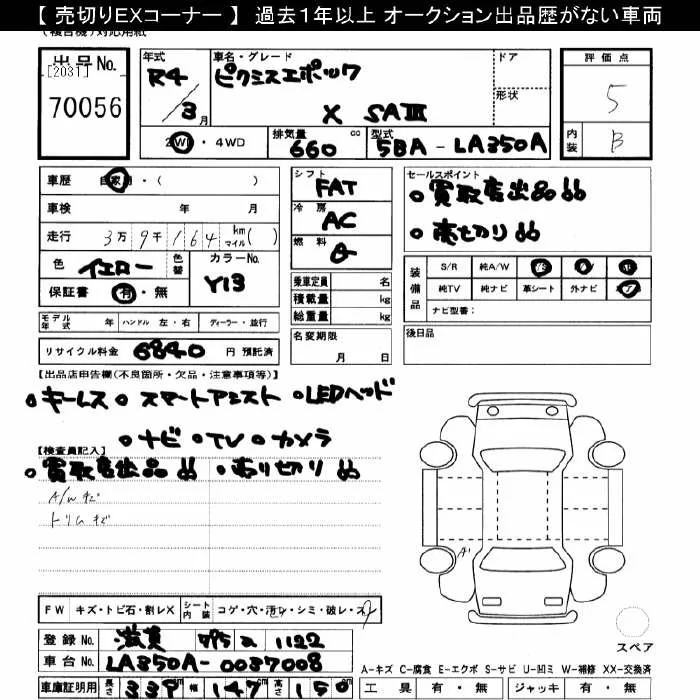 【 売切りEXコーナー 】 過去１年以上 オークション出品歴がない車両
出品No.
[2031]
70056
年式
R4/3月
車名・グレード
ピクシスエポック
X SAⅢ
ドア
形状
評価点
5
内装
B
2WD・4WD
排気量 660 cc
型式 5BA-LA350A
車歴 自家用・( )
車検 年 月
走行 3万9千164 km マイル( )
色 イエロー 色替
カラーNo. Y13
保証書 有・無
シフト FAT
冷房 AC
燃料 G
乗車定員 名
積載量 kg
総重量 kg
セールスポイント
○買取店出品!!
○売切り!!
装備品
S/R 純A/W
純TV 純ナビ 革シート 外ナビ
ナビ型番:
モデル年式 年 ハンドル 左・右 ディーラー・並行
名変期限
月 日
後日品
リサイクル料金 6840 円 預託済
【出品店申告欄(不良箇所・欠品・注意事項等)】
○キーレス ○スマートアシスト ○LEDヘッド
○ナビ ○TV ○カメラ
【検査員記入】
○買取店出品!! ○売り切り!!
A/Wキズ
トリムキズ
A1
FW キズ・トビ石・割レX
シート内装 コゲ・穴・汚レ・シミ・破レ・スレ
スペア
登録No. 滋賀 795 a 1122
車台No. LA350A-0037008
A-キズ C-腐食 E-エクボ S-サビ U-凹ミ W-補修 XX-交換済
車庫証明用 長さ 339 cm 幅 147 cm 高さ 150 cm
工具 有・無 ジャッキ 有・無